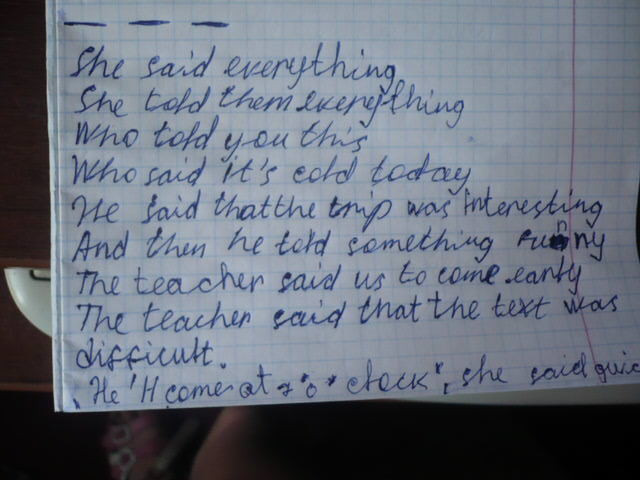 She said everything
She told them everything
Who told you this
Who said it's cold today
He said that the trip was interesting
And then he told something funny
The teacher said us to come early
The teacher said that the text was
difficult.
"He'll come at 7 o'clock", she said